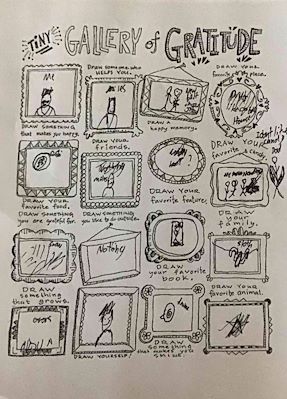 TINY GALLERY of GRATITUDE
DRAW someone who HELPS YOU.
DRAW YOUR favorite place.
Me
DRAW SOMETHING that makes you happy.
DRAW YOUR friends.
DRAW a happy memory.
Home
DRAW YOUR favorite candy.
I don't like candy
DRAW YOUR favorite food.
DRAW YOUR favorite feature.
DRAW SOMETHING you are grateful for.
DRAW SOMETHING you like to do outside.
DRAW your family.
Nothing
DRAW your favorite book.
DRAW something that grows.
DRAW YOUR favorite animal.
DRAW YOURSELF!
DRAW something that makes you SHINE.